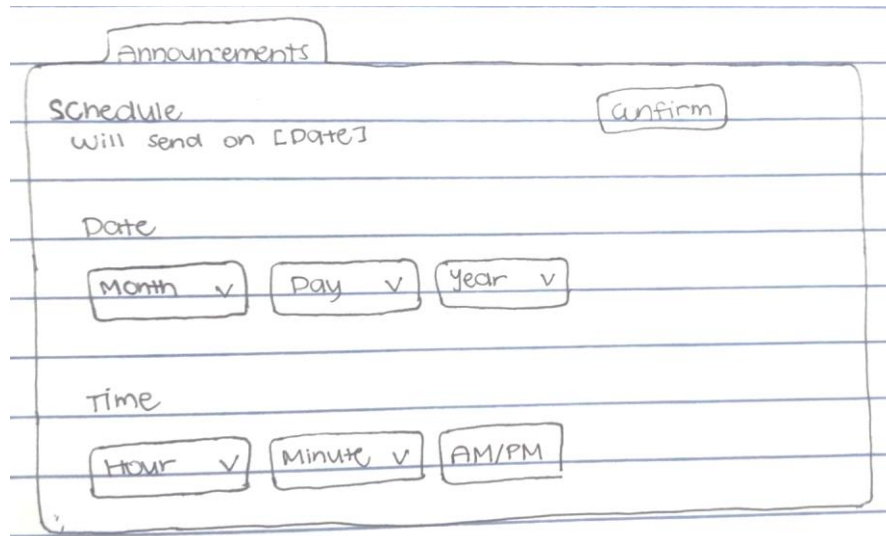 Announcements
Schedule
Confirm
Will send on [Date]
Date
Month v Day v Year v
Time
Hour v Minute v AM/PM